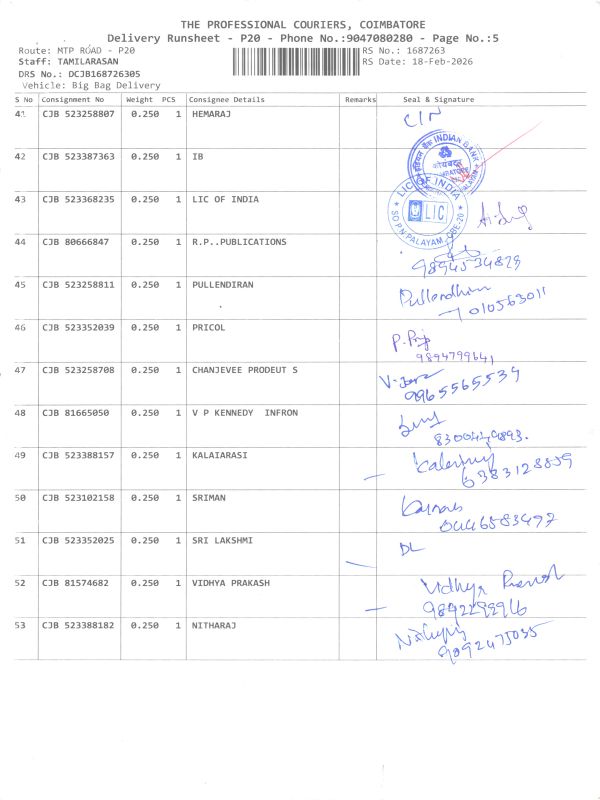 THE PROFESSIONAL COURIERS, COIMBATORE
Delivery Runsheet - P20 - Phone No.:9047080280 - Page No.:5
Route: MTP ROAD - P20 RS No.: 1687263
Staff: TAMILARASAN RS Date: 18-Feb-2026
DRS No.: DCJB168726305
Vehicle: Big Bag Delivery
S No Consignment No Weight PCS Consignee Details Remarks Seal & Signature
41 CJB 523258807 0.250 1 HEMARAJ
42 CJB 523387363 0.250 1 IB
INDIAN BANK
43 CJB 523368235 0.250 1 LIC OF INDIA
LIC OF INDIA
LIC
44 CJB 80666847 0.250 1 R.P..PUBLICATIONS
9894534829
45 CJB 523258811 0.250 1 PULLENDIRAN Pullendhiran
7010563011
46 CJB 523352039 0.250 1 PRICOL
9894799641
47 CJB 523258708 0.250 1 CHANJEVEE PRODEUT S
9965565534
48 CJB 81665050 0.250 1 V P KENNEDY INFRON
49 CJB 523388157 0.250 1 KALAIARASI
6383128859
50 CJB 523102158 0.250 1 SRIMAN
51 CJB 523352025 0.250 1 SRI LAKSHMI DL
52 CJB 81574682 0.250 1 VIDHYA PRAKASH Vidhya
53 CJB 523388182 0.250 1 NITHARAJ
9092475035